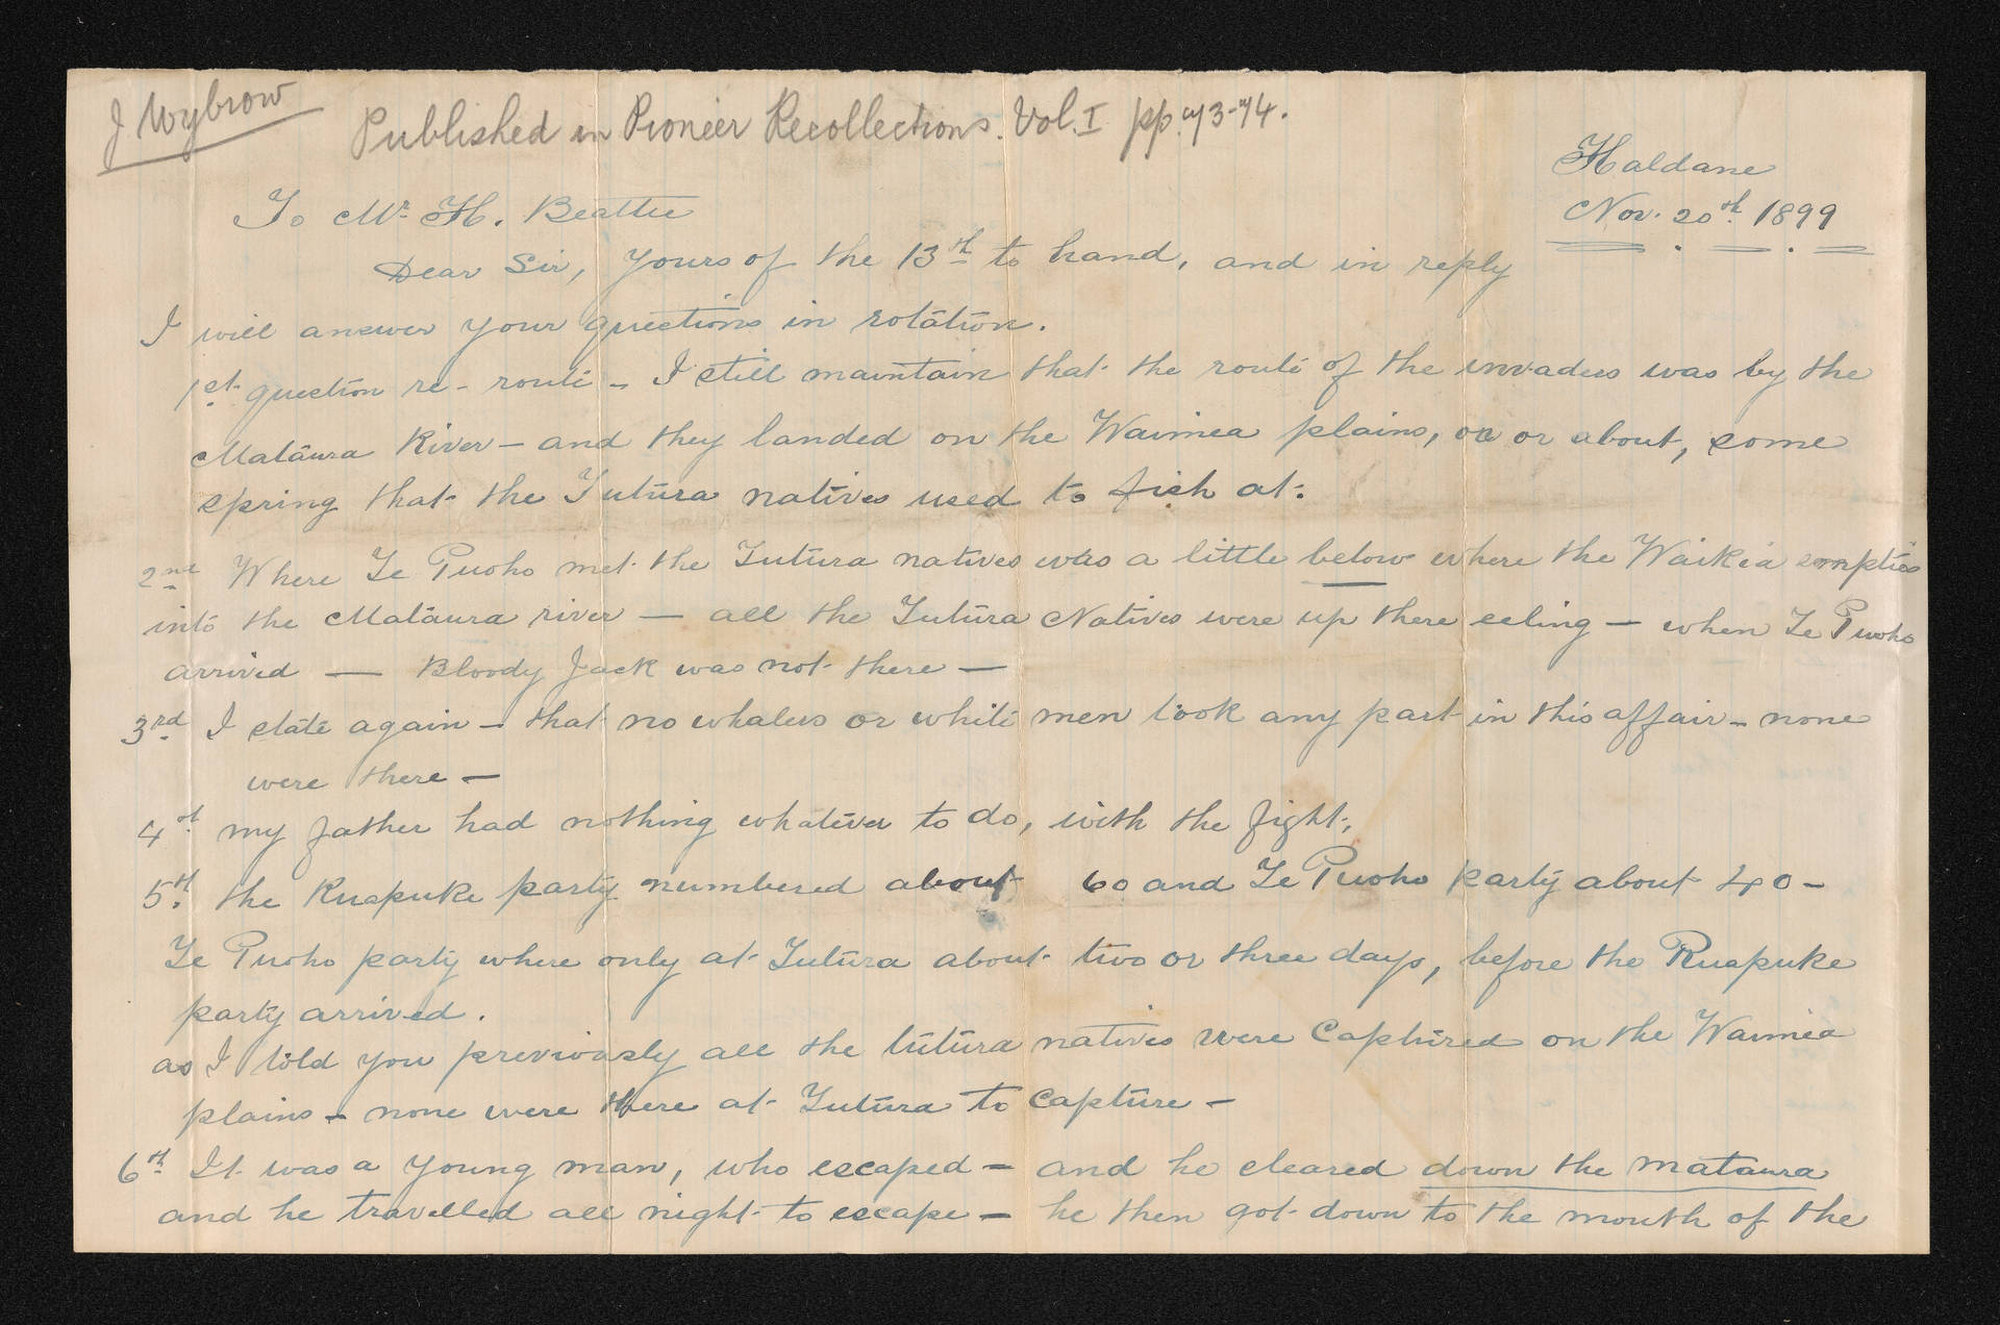 J Wybrow
Published in Pioneer Recollections. Vol. I pp. 73-74.
Haldane
Nov. 20th 1899
To Mr H. Beattie
Dear Sir, yours of the 13th to hand, and in reply
I will answer your questions in rotation.
1st question re- route - I still maintain that the route of the invaders was by the
Mataura River - and they landed on the Waimea plains, on or about, some
spring that the Tutura natives used to fish at.
2nd Where Te Puoho met the Tutura natives was a little below where the Waikia empties
into the Mataura river - all the Tutura Natives were up there eeling - when Te Puoho
arrived - Bloody Jack was not there -
3rd I state again - that no whalers or white men took any part in this affair - none
were there -
4th my father had nothing whatever to do, with the fight,
5th the Ruapuke party numbered about 60 and Te Puoho party about 40 -
Te Puoho party where only at Tutura about two or three days, before the Ruapuke
party arrived.
as I told you previously all the tutura natives were Captured on the Waimea
plains - none were there at Tutura to Capture -
6th It was a young man, who escaped - and he cleared down the mataura
and he travelled all night to escape - he then got down to the mouth of the